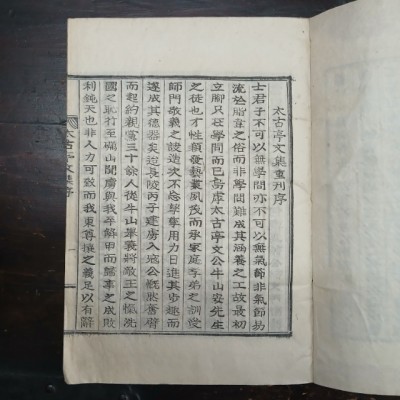 太古亭文集重刊序
士君子不可以無學問亦不可以無氣節非氣節易
流於脂韋之俗而非學問難成其涵養之工故最初
立腳只在學問而已島庠太古亭文公牛山安先生
之徒也才性穎發藝業夙茂而承家庭孝弟之訓受
師門敬義之詮造次不忘孳孳用力日進其步趣而
遂成其德器矣迨長陵丙子建虜入寇公慨然奮臂
而起約親賓三十餘人從牛山舉義將敵王之愾洗
國之恥行至礪山聞虜與我平解甲而歸事之成敗
利鈍天也非人力可致而我東尊攘之義足以有辭
太古亭文集序
一